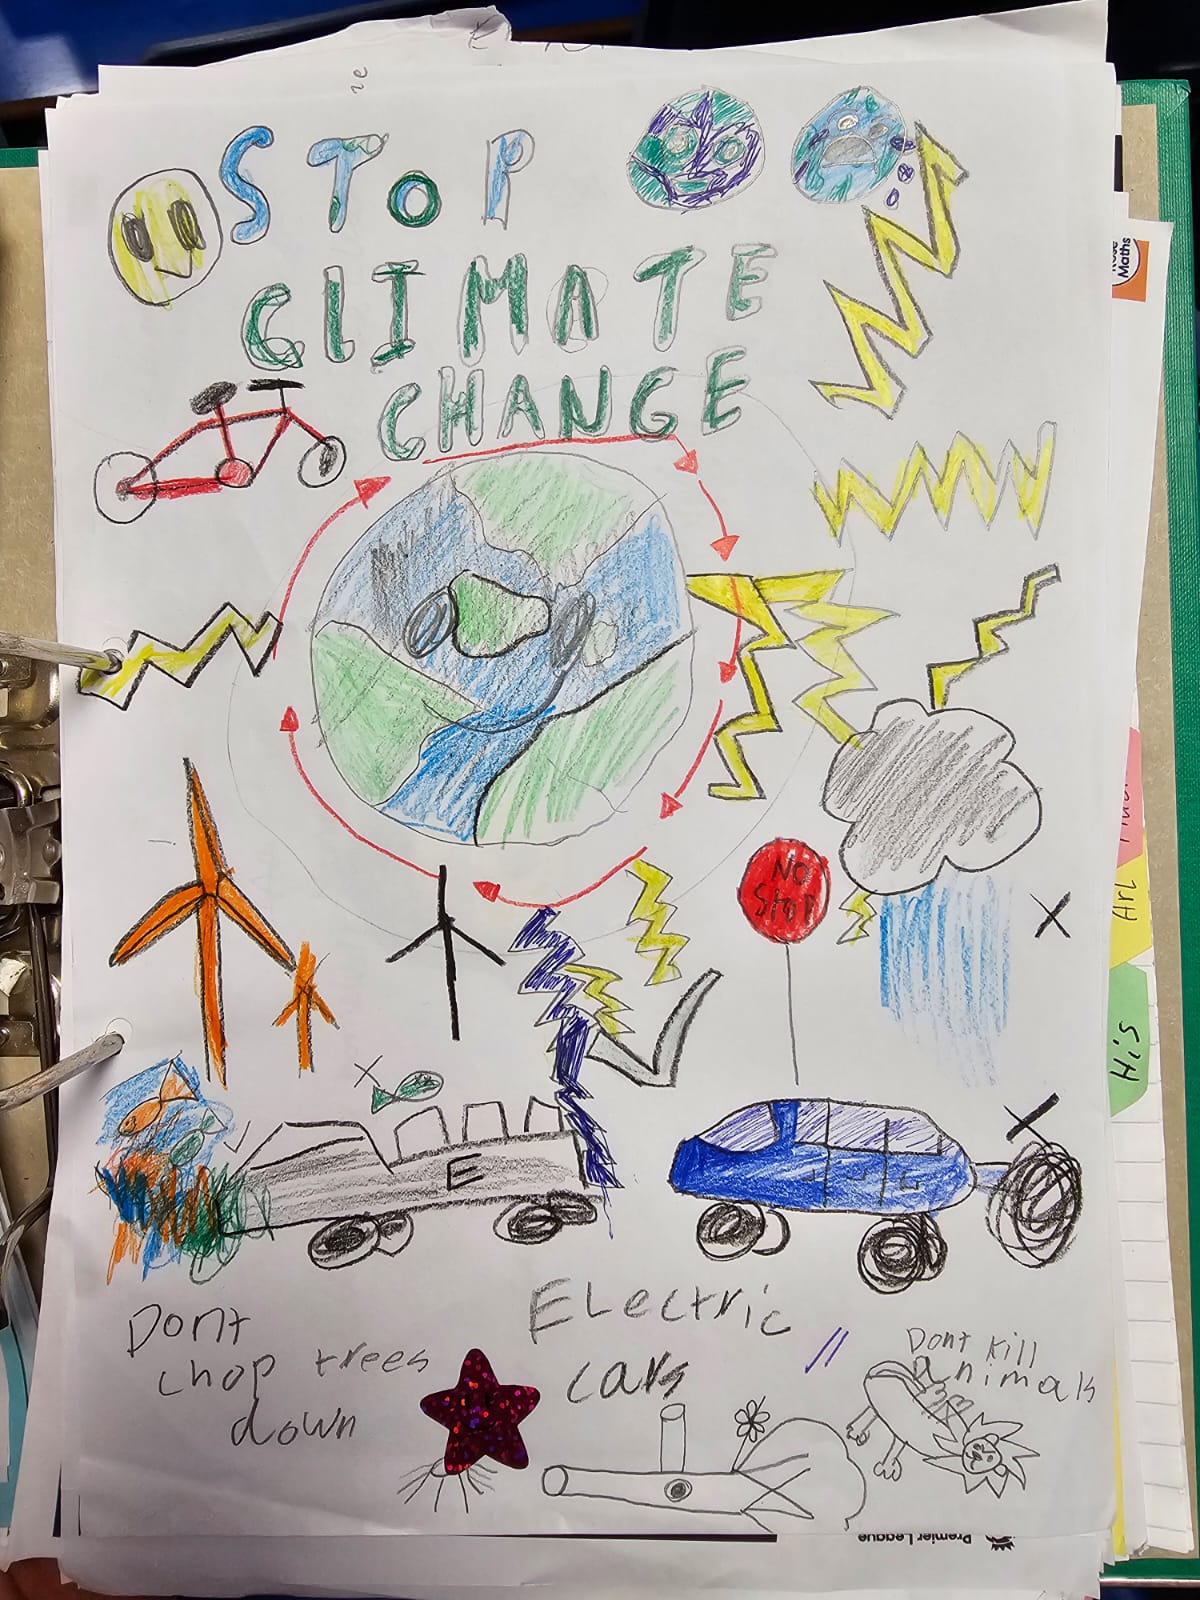 STOP
CLIMATE
CHANGE
NO
StoP
E
Dont
chop trees
down
Electric
cars
Dont kill
animals
Maths
Art
His
Premier League